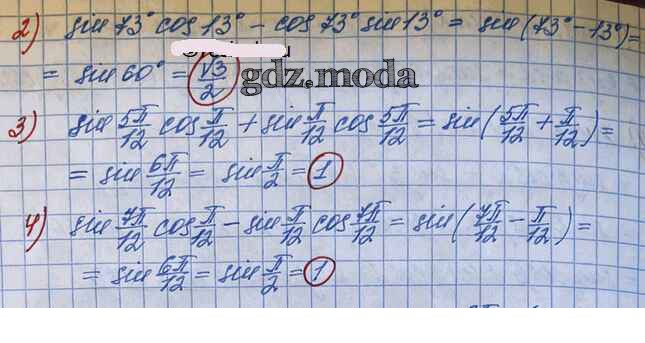 2) sin 73° cos 13° - cos 73° sin 13° = sin (73° - 13°) =
= sin 60° = √3/2
gdz.moda
3) sin 5π/12 cos π/12 + sin π/12 cos 5π/12 = sin (5π/12 + π/12) =
= sin 6π/12 = sin π/2 = 1
4) sin 7π/12 cos π/12 - sin π/12 cos 7π/12 = sin (7π/12 - π/12) =
= sin 6π/12 = sin π/2 = 1